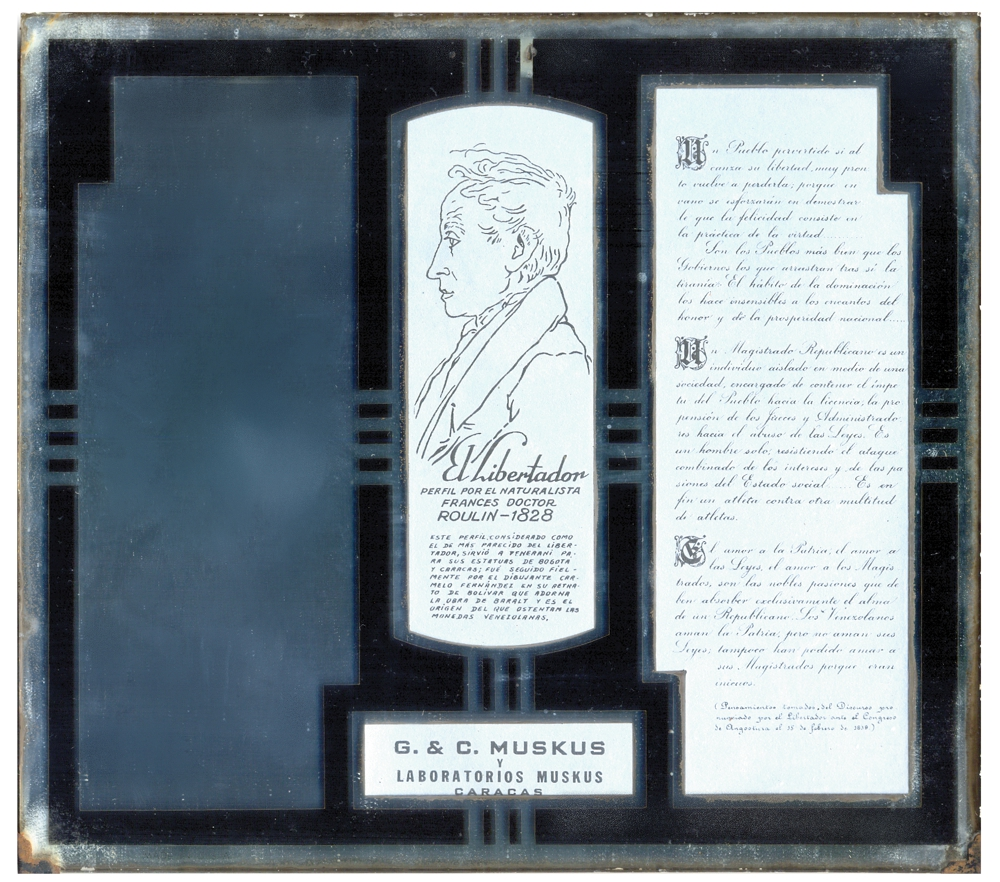 El Libertador
PERFIL POR EL NATURALISTA
FRANCES DOCTOR
ROULIN-1828
ESTE PERFIL, CONSIDERADO COMO
EL DE MÁS PARECIDO DEL LIBER-
TADOR, SIRVIÓ A TENERANI PA-
RA SUS ESTATUAS DE BOGOTA
Y CARACAS; FUÉ SEGUIDO FIEL-
MENTE POR EL DIBUJANTE CAR-
MELO FERNÁNDEZ EN SU RETRA-
TO DE BOLÍVAR QUE ADORNA
LA OBRA DE BARALT Y ES EL
ORIGEN DEL QUE OSTENTAN LAS
MONEDAS VENEZOLANAS.
G. & C. MUSKUS
Y
LABORATORIOS MUSKUS
CARACAS
Un Pueblo pervertido si al
canza su libertad, muy pron
to vuelve a perderla; porque en
vano se esforzarán en demostrar
le que la felicidad consiste en
la práctica de la virtud..........
Son los Pueblos más bien que los
Gobiernos los que arrastran tras sí la
tiranía. El hábito de la dominación
los hace insensibles a los encantos del
honor y de la prosperidad nacional.....
Un Magistrado Republicano es un
individuo aislado en medio de una
sociedad, encargado de contener el ímpe
tu del Pueblo hacia la licencia, la pro
pensión de los Jueces y Administrado
res hacia el abuso de las Leyes. Es
un hombre solo, resistiendo el ataque
combinado de los intereses y de las pa
siones del Estado social..... Es en
fin un atleta contra otra multitud
de atletas.
El amor a la Patria, el amor a
las Leyes, el amor a los Magis
trados, son las nobles pasiones que de
ben absorber exclusivamente el alma
de un Republicano. Los Venezolanos
aman la Patria, pero no aman sus
Leyes; tampoco han podido amar a
sus Magistrados porque eran
inicuos.
(Pensamientos tomados, del Discurso pro
nunciado por el Libertador ante el Congreso
de Angostura el 15 de febrero de 1819.)